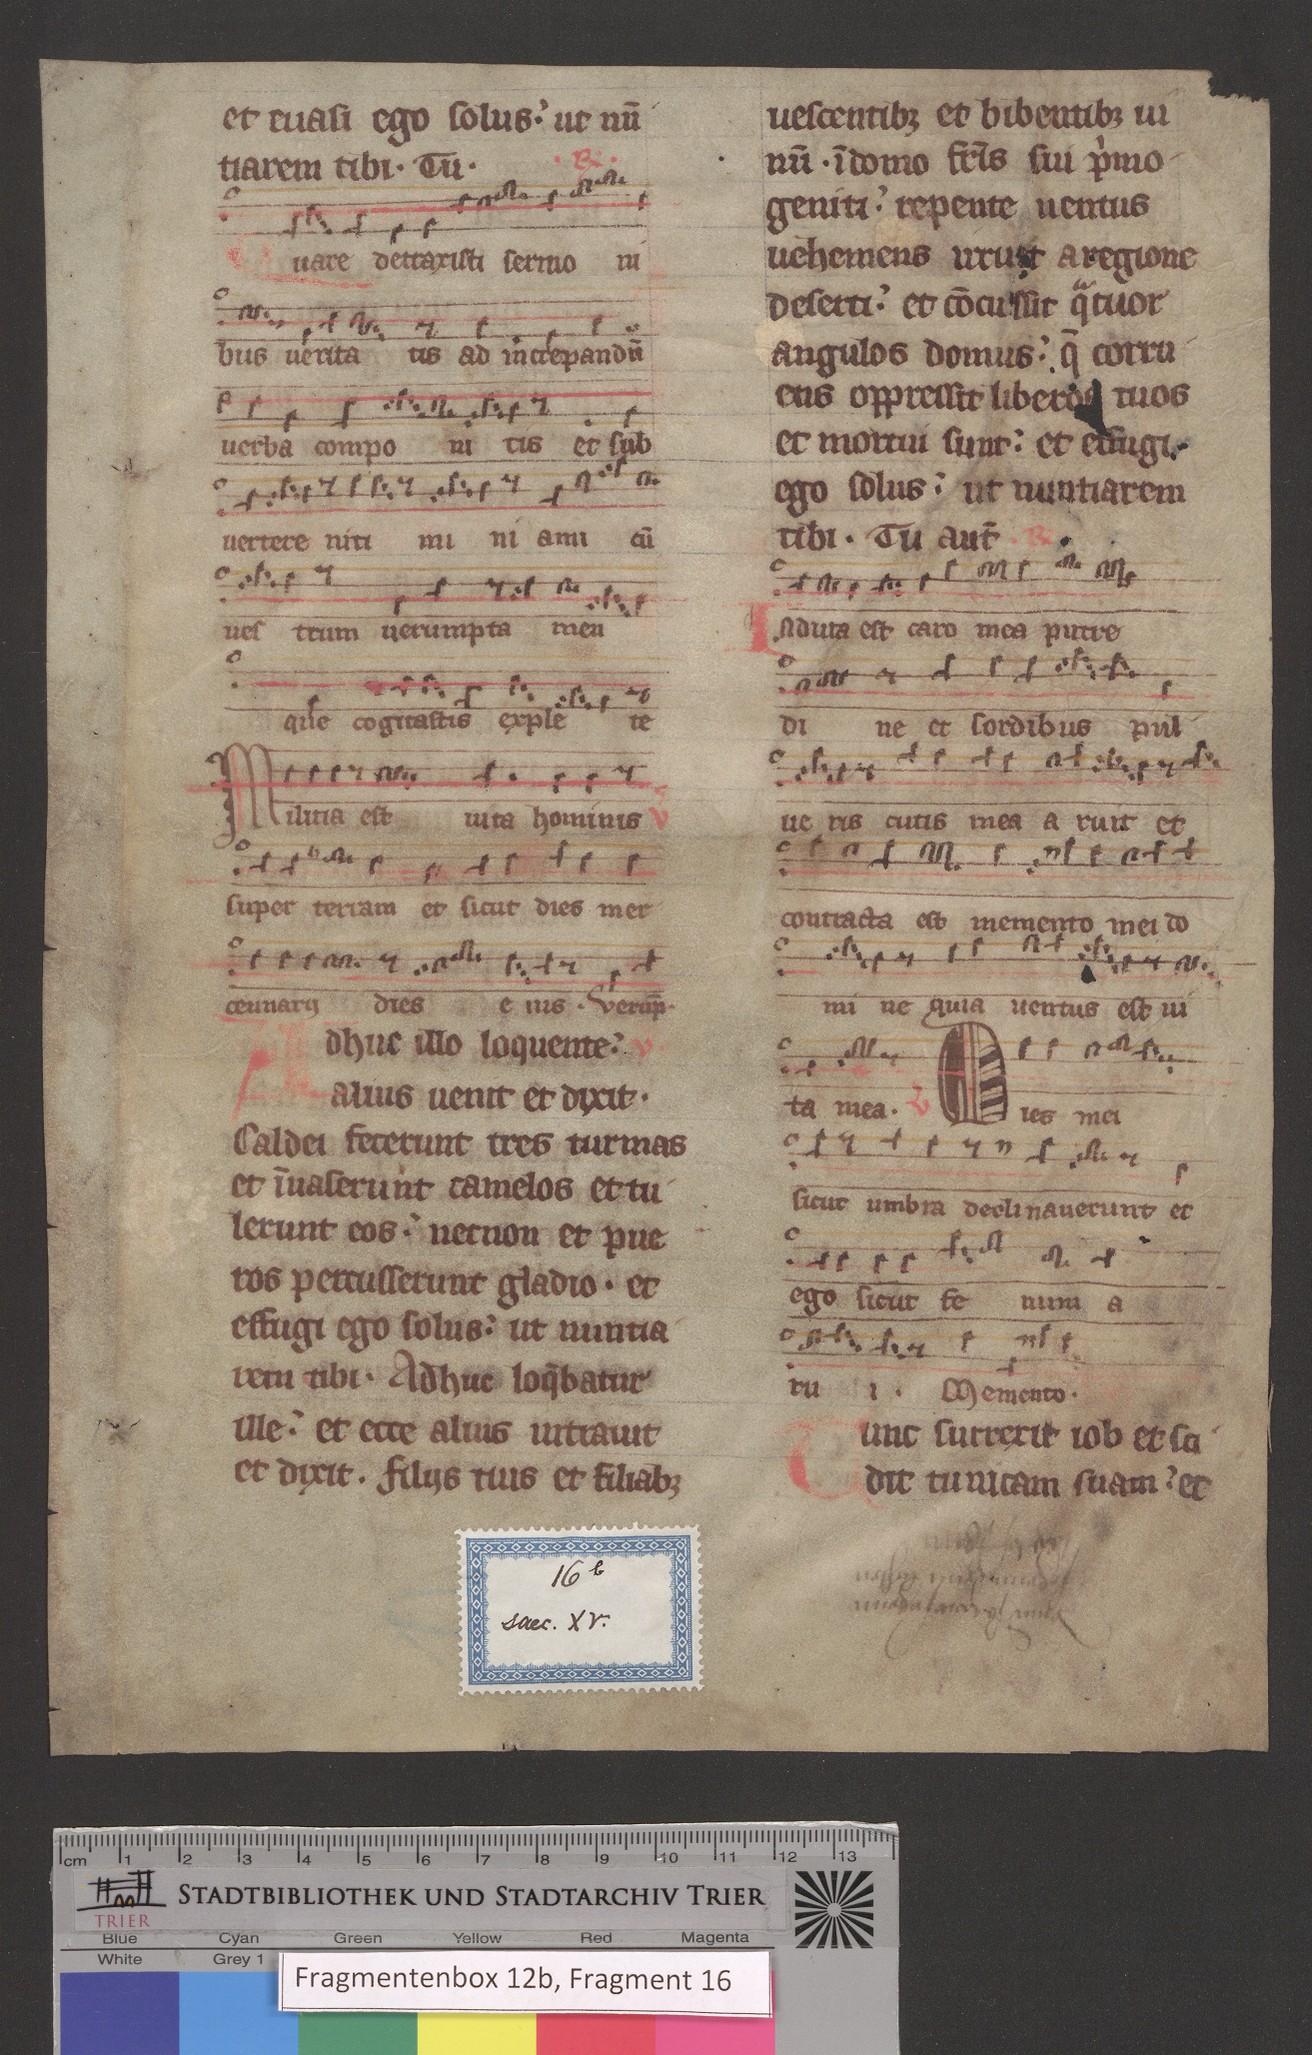 et euasi ego solus: ut nū
tiarem tibi. Tu. R.
Quare detraxisti sermo ni
bus uerita tis ad increpandū
uerba compo ni tis et sub
uertere niti mi ni ami cū
ues trum uerumpta men
que cogitastis exple te
Militia est uita hominis v
super terram et sicut dies mer
cennarij dies e ius. Verūp.
Adhuc illo loquente: v
alius uenit et dixit.
Caldei fecerunt tres turmas
et īuaserunt camelos et tu
lerunt eos: necnon et pue
ros percusserunt gladio. et
effugi ego solus: ut nuntia
rem tibi. Adhuc loq̄batur
ille: et ecce alius intrauit
et dixit. filijs tuis et filiabꝫ
uescentibꝫ et bibentibꝫ ui
nū. īdomo fr̄is sui p̓mo
geniti: repente uentus
uehemens irruit a regione
deserti: et cōcussit q̈tuor
angulos domus: q̄ corru
ens oppressit liberos tuos
et mortui sunt: et effugi
ego solus: ut nuntiarem
tibi. Tu aut̄ R.
Induta est caro mea putre
di ne et sordibus pul
ue ris cutis mea a ruit et
contracta est memento mei do
mi ne quia uentus est ui
ta mea. V Dies mei
sicut umbra declinauerunt et
ego sicut fe num a
ru i. Memento.
Tunc surrexit iob et sci
dit tunicam suam: et
16 b
saec. XV.
cm 1 2 3 4 5 6 7 8 9 10 11 12 13
STADTBIBLIOTHEK UND STADTARCHIV TRIER
TRIER
Blue Cyan Green Yellow Red Magenta
White Grey 1
Fragmentenbox 12b, Fragment 16